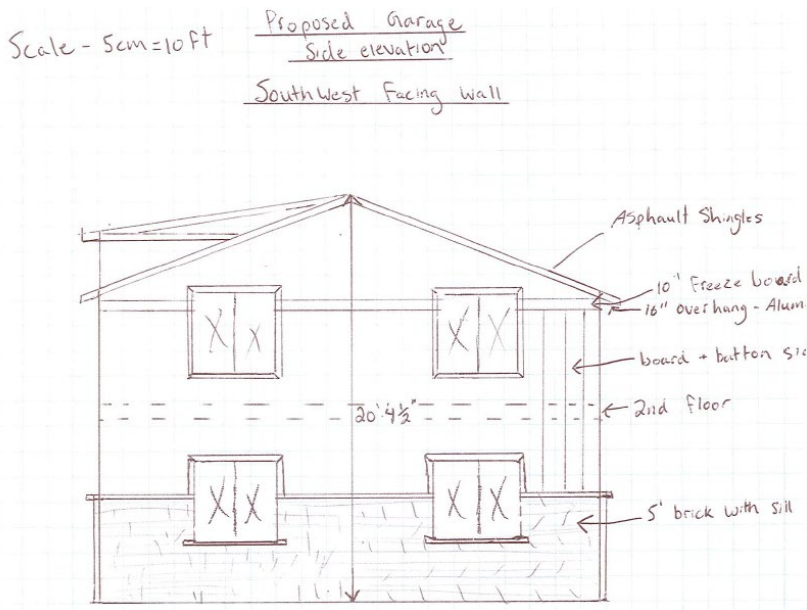 Scale - 5cm=10ft
Proposed Garage
Side elevation
SouthWest Facing Wall
Asphault Shingles
10" Freeze board
16" overhang - Alum
board + button si
2nd floor
20'4½"
5' brick with sill
X X
X X
X X
X X